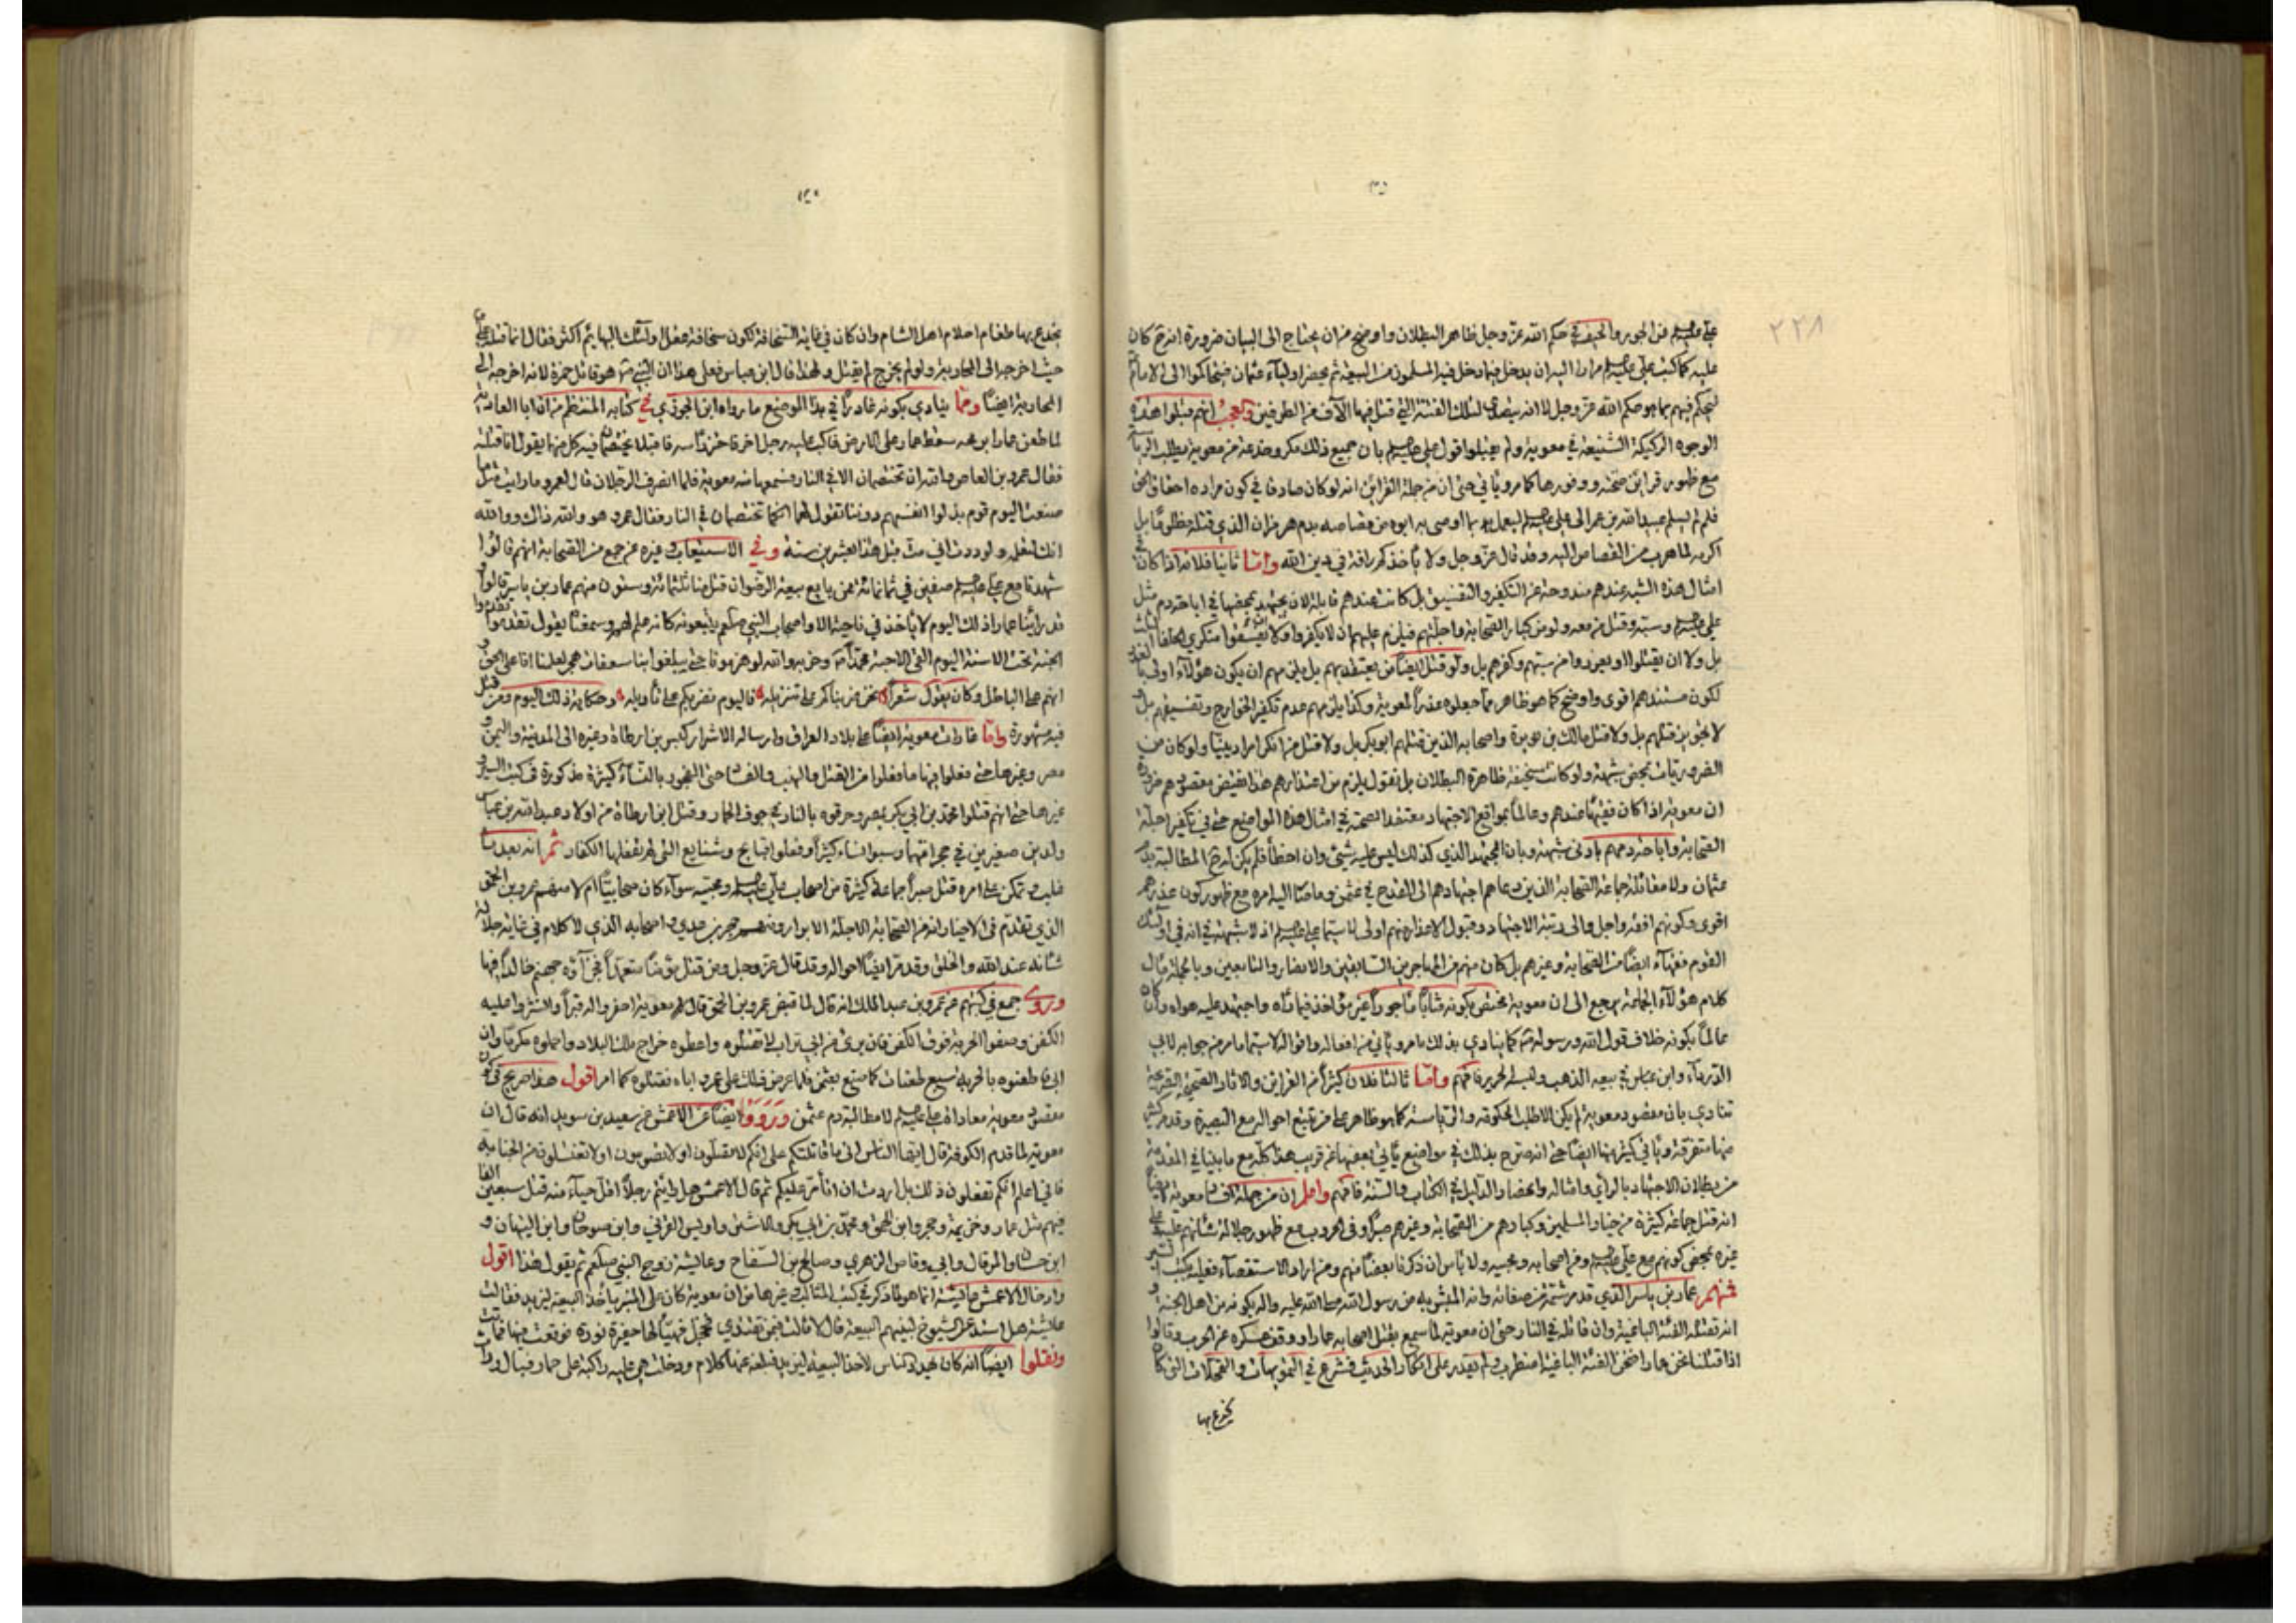 ٢٢٨
علي عليه السلم من الجور والحيف في حكم الله عز وجل ظاهر البطلان واوضح من ان يحتاج الى البيان ضرورة انه كان
عليه كما كتب علي عليه السلم مرارا اليه ان يدخل فيما دخل فيه المسلمون من البيعة ثم يحضر اولياء عثمان فيتحاكموا الى الامام
ليحكم فيهم بما هو حكم الله عز وجل لا انه يتصدى لتلك الفتنة التي قتل فيها الآف من الطرفين والعجب انهم قبلوا هذه
الوجوه الركيكة الشنيعة في معوية ولم يقبلوا قول علي عليه السلم بان جميع ذلك مكر وخدعة من معوية يطلب الرياسة
مع ظهور قراين صحته ووفورها كما مر ويأتي حتى ان من جملة القراين انه لو كان صادقا في كون مراده احقاق الحق
فلم لم يسلم عبيد الله بن عمر الى علي عليه السلم ليعمل بما اوصى به ابوه من قصاصه بدم هرمزان الذي قتله مظلوما بل
اكرمه لما هرب من القصاص اليه وقد قال عز وجل ولا تأخذكم رأفة في دين الله وامّا ثانيا فلانه اذا كان
امثال هذه الشبه عندهم مندوحة عن التكفير والتفسيق بل كانت عندهم قابلة لان يجتهد بمحضها في اباحة دم مثل
علي عليه السلم وسبه وقتل من معه ولو من كبار الصحابة واجلتهم فيلزم عليهم ان لا يكفروا ولا يفسقوا منكري الخلفاء الثلث
بل ولا ان يقتلوا او يعزروا من سبهم وكفرهم بل ولو قتل ايضا من يعتقد بهم بل يلزمهم ان يكون هؤلاء اولى بالعذر
لكون مستندهم اقوى واوضح كما هو ظاهر مما جعلوه عذرا لمعوية وكذا يلزمهم عدم تكفير الخوارج وتفسيقهم بل
لا تجويز قتلهم بل ولا قتل مالك بن نويرة واصحابه الذين قتلهم ابو بكر بل ولا قتل من انكر امرا دينيا ولو كان من
الضروريات بمحض شبهة ولو كانت سخيفة ظاهرة البطلان بل نقول يلزم من اعتذارهم هذا نقيض مقصودهم
ان معوية اذا كان فقيها عندهم وعالما بمواقع الاجتهاد معتقدا لصحته في امثال هذه المواضع حتى في تكفير اجلة
الصحابة واباحة دمهم بادنى شبهة وبان المجتهد الذي كذلك ليس عليه شئ وان اخطأ فلم يكن له المطالبة بدم
عثمان ولا مقاتلة جماعة الصحابة الذين دعاهم اجتهادهم الى القدح في عثمن وما صار اليه امره مع ظهور كون عذرهم
اقوى وكونهم افقه واجل واالى رتبة الاجتهاد وقبول الاعذار منهم اولى لا سيما علي عليه السلم اذ لا شبهة في انه في اولئك
القوم فقهاء ايضا من الصحابة وغيرهم بل كان منهم من المهاجرين السابقين والانصار والتابعين وبالجملة مآل
كلام هؤلاء الجماعة يرجع الى ان معوية مختص بكونه مثابا مأجورا غير مؤاخذ فيما رآه واجتهد عليه هواه وان كان
عالما بكونه خلاف قول الله ورسوله كما ينادي بذلك ما مر ويأتي من افعاله واقواله لا سيما ما مر من جوابه لابي
الدرداء وابن عباس في بيعه الذهب ولبسه الحرير فافهم وامّا ثالثا فلان كثيرا من القراين والاثار الصحيحة الصريحة
تنادي بان مقصود معوية لم يكن الا طلب الحكومة والرياسة كما هو ظاهر على من تتبع احواله مع البصيرة وقد مر كثير
منها متفرقة ويأتي كثير منها ايضا حتى انه صرح بذلك في مواضع يأتي بعضها عن قريب هذا كله مع ما بينا في المقدمة
من بطلان الاجتهاد بالرأي وامثاله وانحصار الدليل في الكتاب والسنة فافهم واعلم ان من جملة آفات معوية ايضا
انه قتل جماعة كثيرة من خيار المسلمين وكبارهم من الصحابة وغيرهم صبرا وفي الحروب مع ظهور جلالة شأنهم عليه على
غيره بمحض كونهم مع علي عليه السلم ومن اصحابه ومحبيه ولا بأس ان ذكرنا بعضا منهم ومن اراد الاستقصاء فعليه بكتب السير
فمنهم عمار بن ياسر الذي قد مر شمة من صفاته وانه المبشر به من رسول الله صلى الله عليه واله بكونه من اهل الجنة و
انه تقتله الفئة الباغية وان قاتله في النار حتى ان معوية لما سمع بقتل اصحابه عمارا ووقف عسكره عن الحرب وقالوا
اذا قتلنا نحن عمارا فنحن الفئة الباغية اضطرب ولم يقدر على انكار الحديث فشرع في التمويهات والتمحلات التي كان
يخدع بها
يخدع بها طغام احلام اهل الشام وان كان في غاية السخافة لكون سخافة عقل اولئك البهايم اكثر فقال انما قتله علي
حيث اخرجه الى المحاربة ولو لم يخرج لم يقتل ولهذا قال ابن عباس فعلى هذا ان النبي ص هو قاتل حمزة لانه اخرجه الى
المحاربة ايضا ومما ينادي بكونه غادرا في هذا الموضع ما رواه ابن الجوزي في كتابه المنتظم من ان ابا العادية
لما طعن عمارا برمحه سقط عمار على الارض فاكب عليه رجل اخر فاحتز رأسه فاقبلا يختصمان فيه كل منهما يقول انا قتلته
فقال عمرو بن العاص والله ان تختصمان الا في النار فسمعها منه معوية فلما انصرف الرجلان قال لعمرو ما رأيت مثل ما
صنعت اليوم قوم بذلوا انفسهم دوننا تقول لهما انكما تختصمان في النار فقال عمرو هو والله ذاك ووالله
انك لتعلمه ولوددت اني مت قبل هذا بعشرين سنة وفي الاستيعاب وغيره عن جمع من الصحابة انهم قالوا
شهدنا مع علي عليه السلم صفين في ثمانمائة ممن بايع بيعة الرضوان قتل منا ثلثمائة وستون منهم عمار بن ياسر قالوا و
قد رأينا عمارا ذلك اليوم لا يأخذ في ناحية الا واصحاب النبي صلعم يتبعونه كانه علم لهم وسمعنا يقول تقدموا
الجنة تحت الاسنة اليوم القى الاحبة محمدا ص وحزبه والله لو هزمونا حتى يبلغوا بنا سعفات هجر لعلمنا انا على الحق و
انهم على الباطل وكان يقول شعرا نحن ضربناكم على تنزيله فاليوم نضربكم على تأويله وحكاية ذلك اليوم ومن قتل
فيه مشهورة وامّا غارات معوية ايضا على بلاد العراق وارساله الاشرار كبسر بن ارطاة وغيره الى المدينة واليمن و
مصر وغيرها حتى فعلوا فيها ما فعلوا من القتل والنهب والفساد حتى الفجور بالنساء كثيرة مذكورة في كتب السير و
غيرها حتى انهم قتلوا محمد بن ابي بكر بمصر وحرقوه بالنار في جوف الحمار وقتل ابن ارطاة من اولاد عبيد الله بن عباس
ولدين صغيرين في حجر امهما وسبوا النساء كثيرا وفعلوا قبايح وشنايع التي لم يفعلها الكفار ثم انه بعد ما
غلب وتمكن على امره قتل صبرا جماعة كثيرة من اصحاب علي عليه السلم ومحبيه سواء كان صحابيا ام لا منهم عمرو بن الحمق
الذي تقدم في الاخبار انه من الصحابة الاجلة الابرار ومنهم حجر بن عدي واصحابه الذي لا كلام في غاية جلالة
شأنه عند الله والخلق وقد مر ايضا احواله وقد قال عز وجل ومن قتل مؤمنا متعمدا فجزآؤه جهنم خالدا فيها
وروى جمع في كتبهم عن عمرو بن عبد الملك انه قال لما قبض عمرو بن الحمق قال لهم معوية احفروا له قبرا وانشروا عليه
الكفن وصفوا الحربة فوق الكفن فان برئ من ابي تراب لا تقتلوه واعطوه خراج ملك البلاد واحملوه مكرما وان
ابى فاطعنوه بالحربة سبع طعنات كما صنع بعثمن فلما عرض ذلك على عمرو اباه فقتلوه كما امر اقول هذا صريح في كون
مقصود معوية معاداة علي عليه السلم لا مطالبة دم عثمن وروَوْا ايضا عن الاعمش عن سعيد بن سويد انه قال ان
معوية لما قدم الكوفة قال ايها الناس اني ما قاتلتكم على انكم لا تصلون او لا تصومون او لا تغتسلون من الجنابة
فاني اعلم انكم تفعلون ذلك بل اردت ان اتأمر عليكم ثم قال الاعمش هل رأيتم رجلا اقل حياء منه قتل سبعين الفا
فيهم مثل عمار وخزيمة وحجر وابن الحمق ومحمد بن ابي بكر والاشتر واويس القرني وابن صوحان وابن التيهان و
ابن حسان والمرقال وابي وقاص الزهري وصالح بن السفاح وعايشة زوج النبي صلعم ثم يقول هذا اقول
وادخال الاعمش عايشة انما هو لما ذكر في كتب المثالب وغيرها من ان معوية كان على المنبر يأخذ البيعة ليزيد فقالت
عايشة هل استدعى الشيوخ لبنيهم البيعة قال لا قالت فبمن تقتدي فخجل فهيأ لها حفرة فوقعت فيها فماتت
ونقلوا ايضا انه كان يهدد الناس لاخذ البيعة ليزيد فبلغه عنها كلام ودخلت هي عليه راكبة على حمار فبال وراث